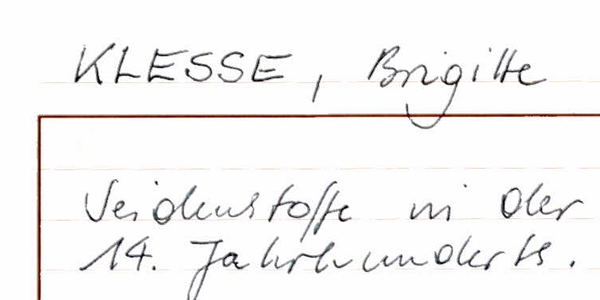 KLESSE, Brigitte
Seidenstoffe in der
14. Jahrhunderts.